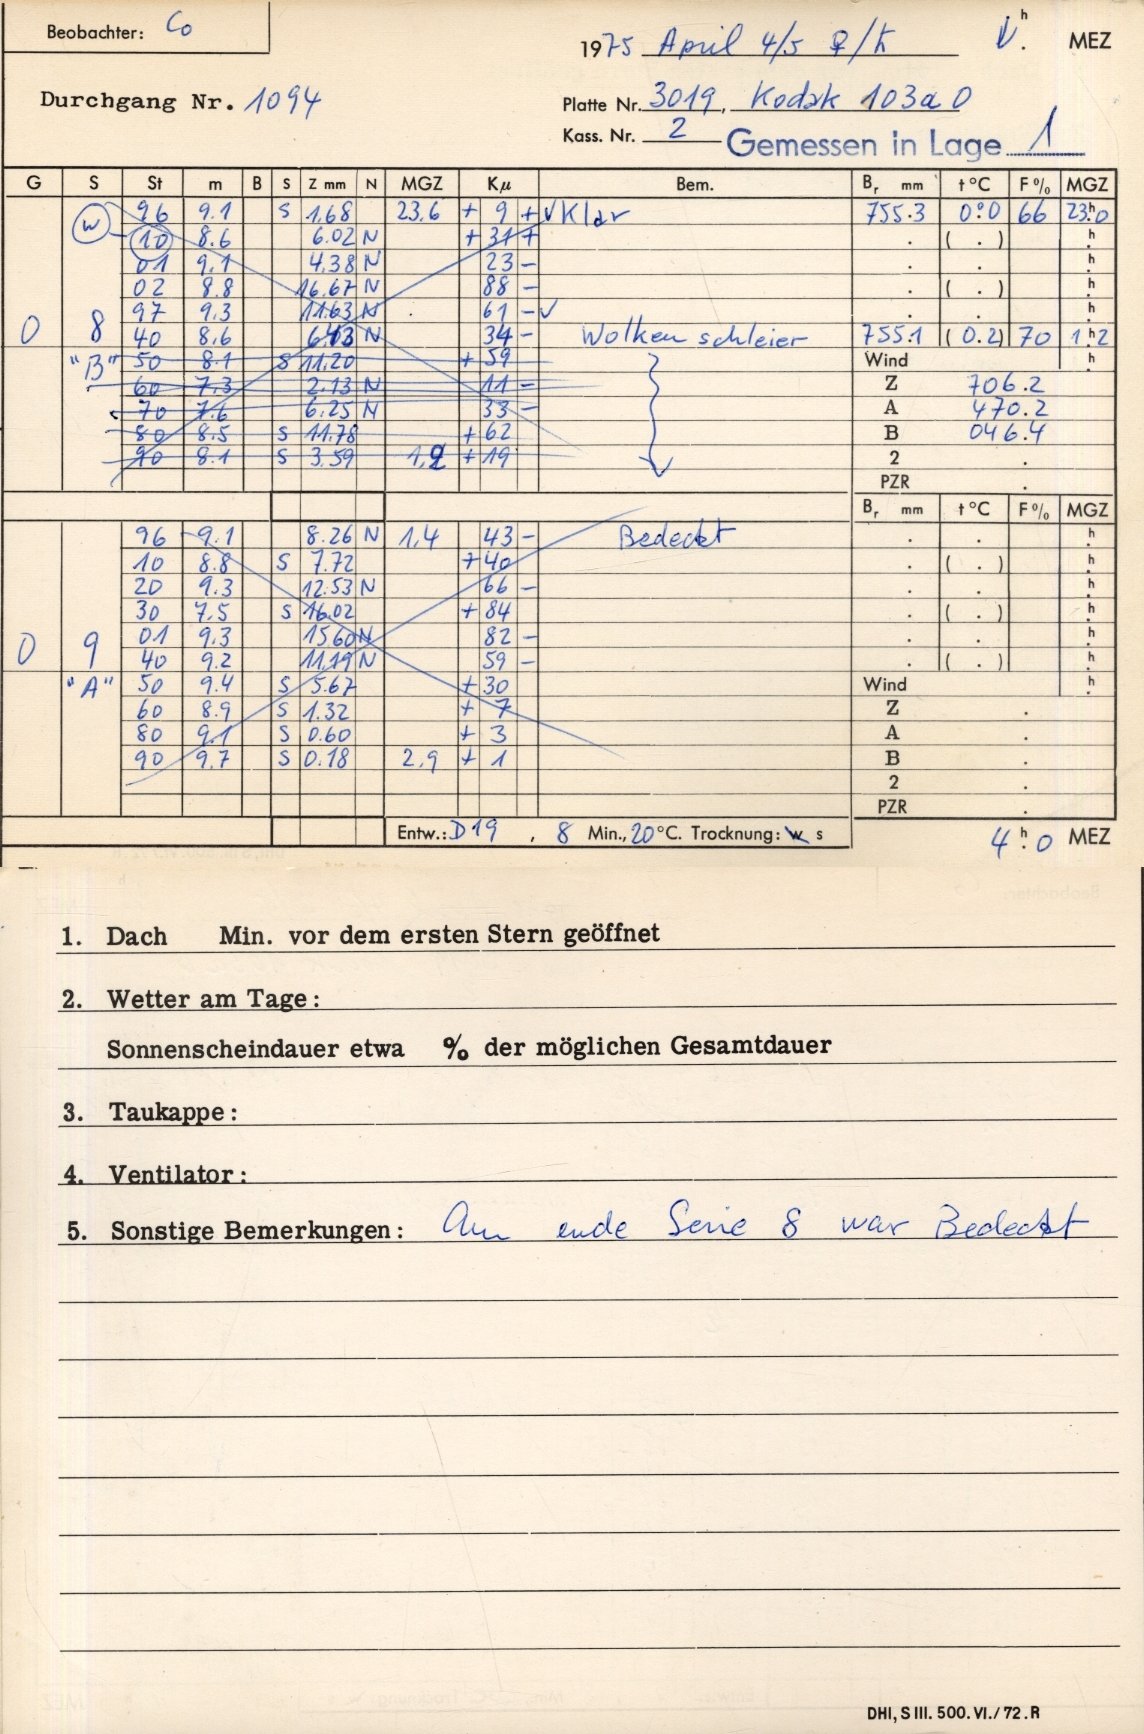 Beobachter: Co
1975 April 4/5 ♀/♄ h MEZ
Durchgang Nr. 1094
Platte Nr. 3019, Kodak 103a0
Kass. Nr. 2 Gemessen in Lage 1
G S St m B S Z mm N MGZ Kμ Bem. Br mm t °C F% MGZ
W 96 9.1 S 1.68 23.6 + 9 + √ Klar 755.3 0.0 66 23h0
10 8.6 6.02 N + 31 + . ( . ) h
01 9.1 4.38 N 23 - . . h
02 8.8 16.67 N 88 - . ( . ) h
97 9.3 11.63 N 61 - √ . . h
0 8 40 8.6 6.43 N 34 - Wolkenschleier 755.1 ( 0.2 ) 70 1h2
"B" 50 8.1 S 11.20 + 59 Wind h
60 7.3 2.13 N 11 - Z 706.2
70 7.6 6.25 N 33 - A 470.2
80 8.5 S 11.78 + 62 B 046.4
90 8.1 S 3.59 1.2 + 19 2 .
PZR .
Br mm t °C F% MGZ
96 9.1 8.26 N 1.4 43 - Bedeckt . . h
10 8.8 S 7.72 + 40 . ( . ) h
20 9.3 12.53 N 66 - . . h
30 7.5 S 16.02 + 84 . ( . ) h
01 9.3 15.60 N 82 - . . h
0 9 40 9.2 11.19 N 59 - . ( . ) h
"A" 50 9.4 S 5.67 + 30 Wind h
60 8.9 S 1.32 + 7 Z .
80 9.1 S 0.60 + 3 A .
90 9.7 S 0.18 2.9 + 1 B .
2 .
PZR .
Entw.: D19 , 8 Min., 20 °C. Trocknung: w s 4h.0 MEZ
1. Dach Min. vor dem ersten Stern geöffnet
2. Wetter am Tage:
Sonnenscheindauer etwa % der möglichen Gesamtdauer
3. Taukappe:
4. Ventilator:
5. Sonstige Bemerkungen: Am ende Serie 8 war Bedeckt
DHI, S III. 500. VI./72. R